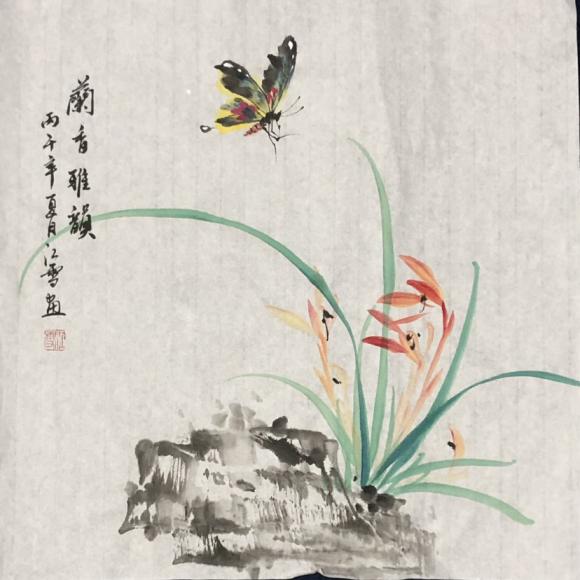 蘭香雅韻
丙子年夏月江雪畫